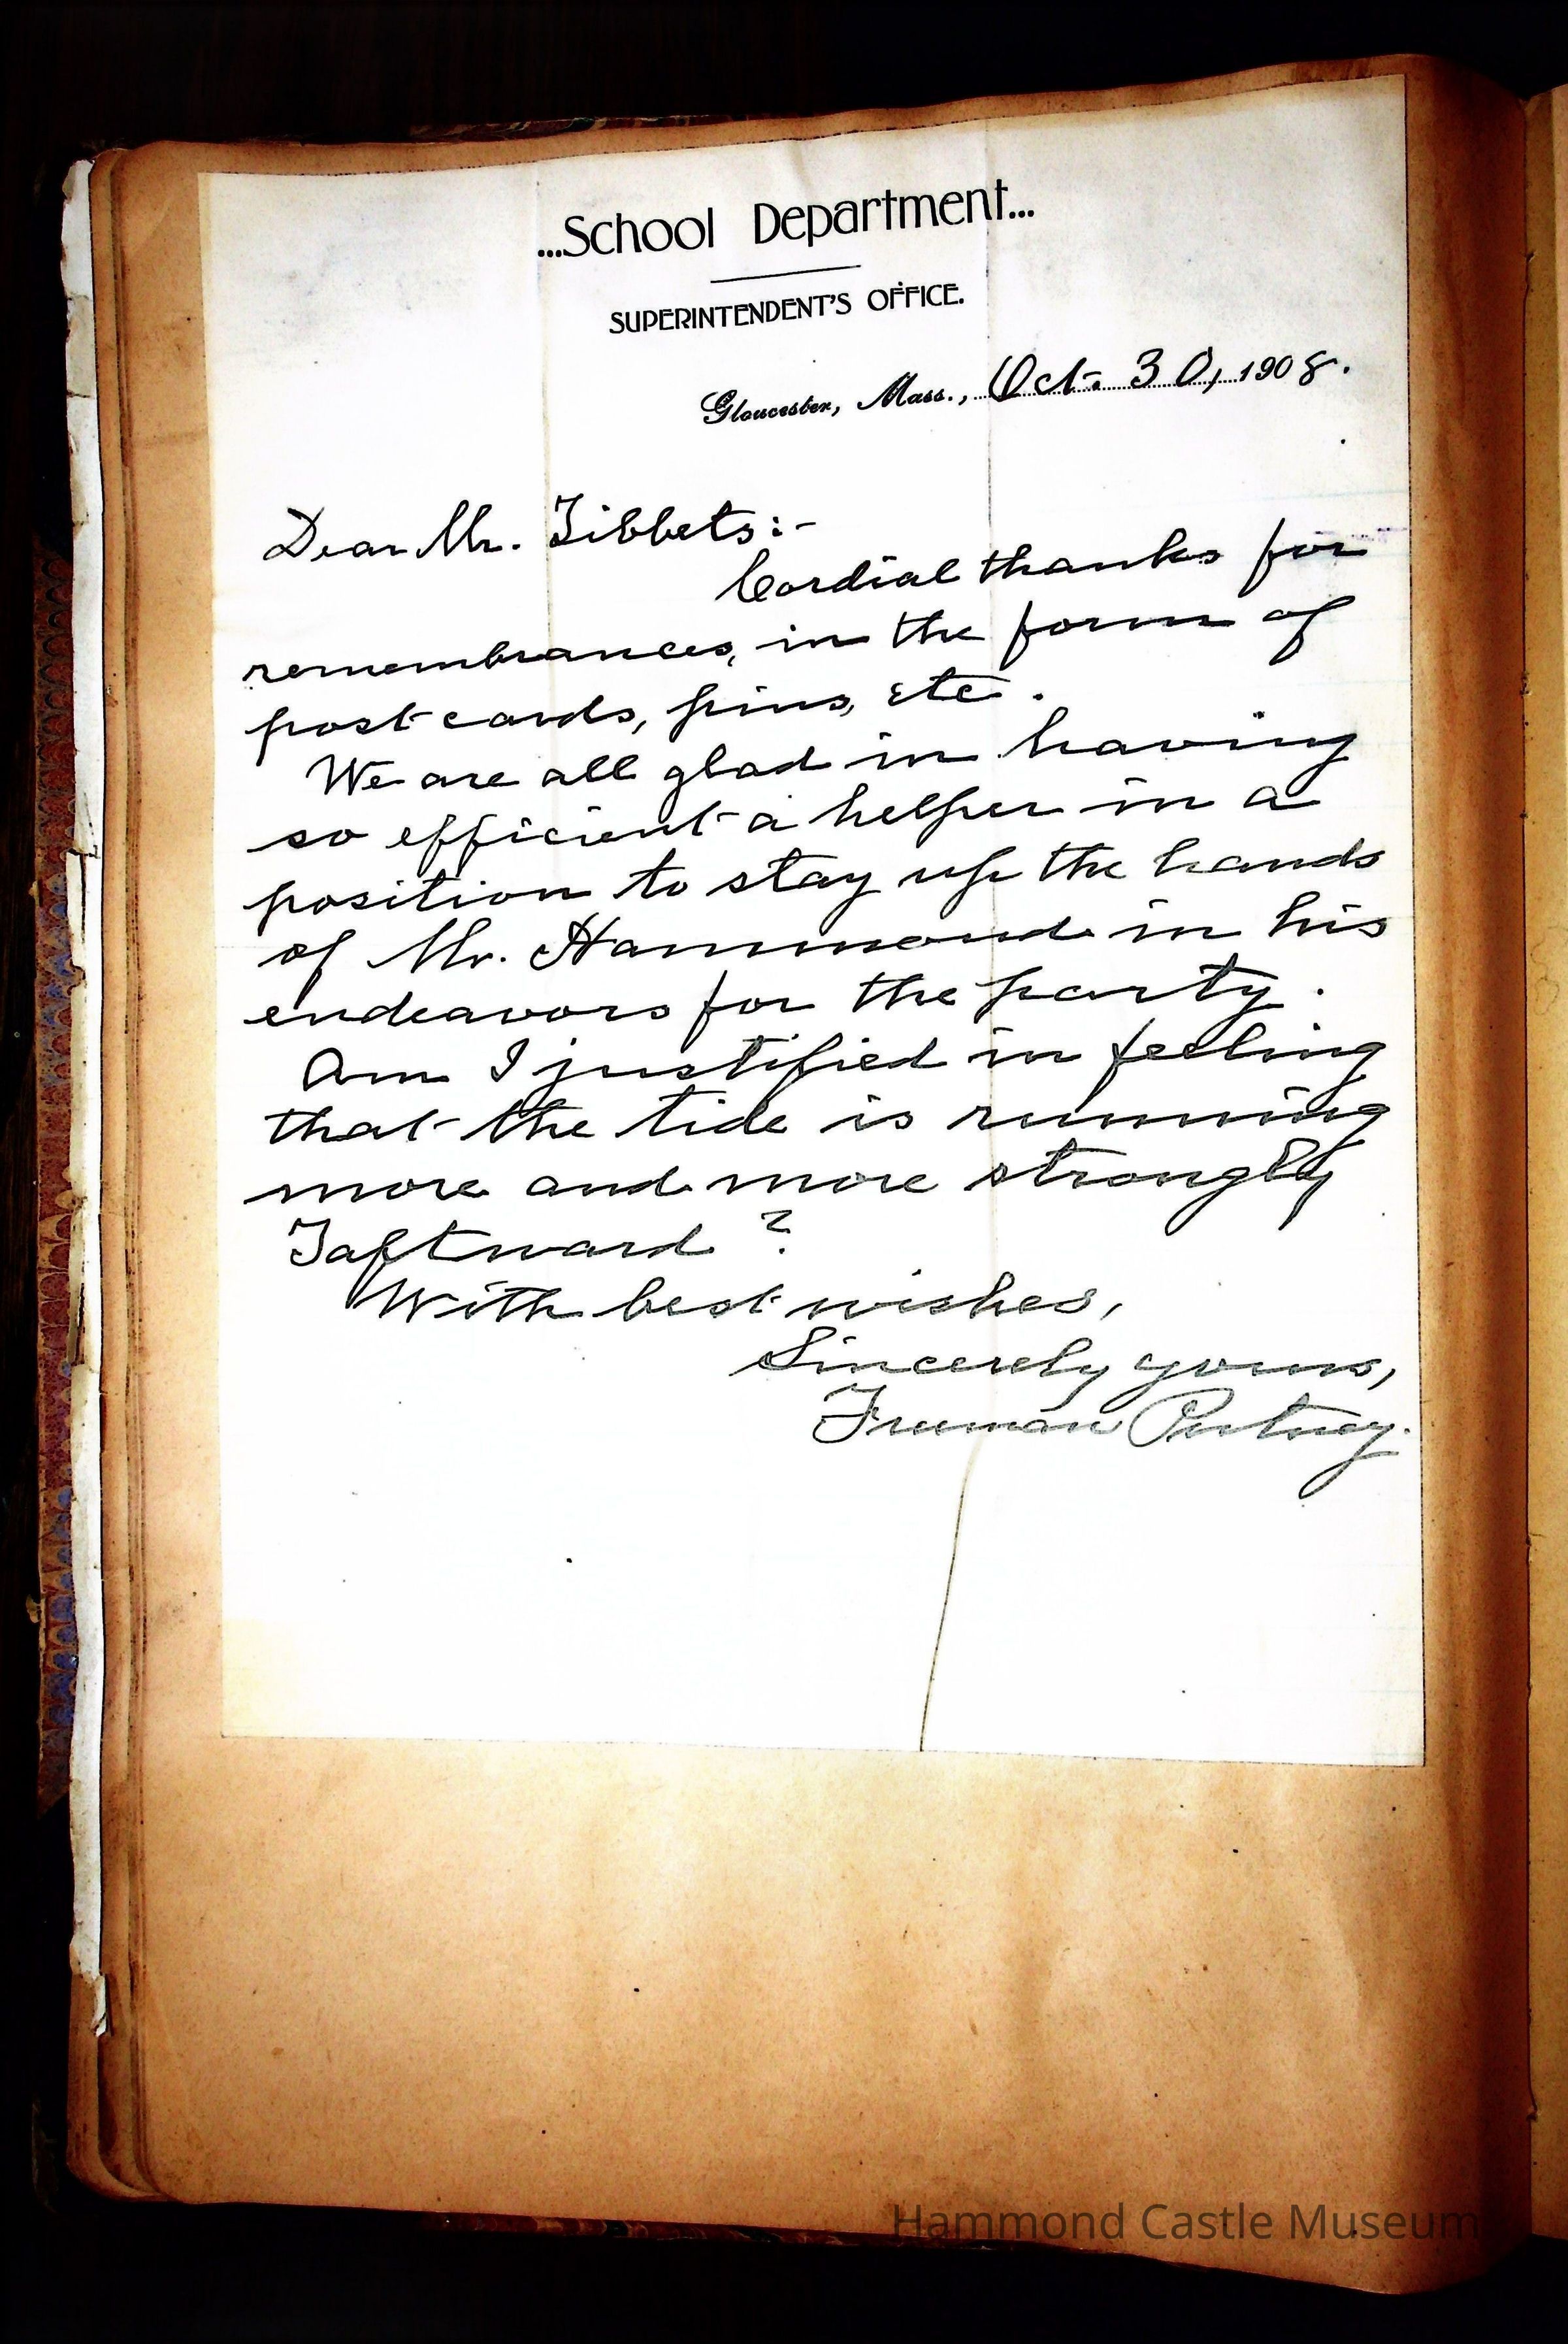 ...School Department...
SUPERINTENDENT'S OFFICE.
Gloucester, Mass., Oct. 30, 1908.
Dear Mr. Tibbets:-
Cordial thanks for
remembrances, in the form of
post cards, pins, etc.
We are all glad in having
so efficient a helper in a
position to stay up the hands
of Mr. Hammond in his
endeavors for the party.
Am I justified in feeling
that the tide is running
more and more strongly
Taftward?
With best wishes,
Sincerely yours,
Freeman Putney.
Hammond Castle Museum